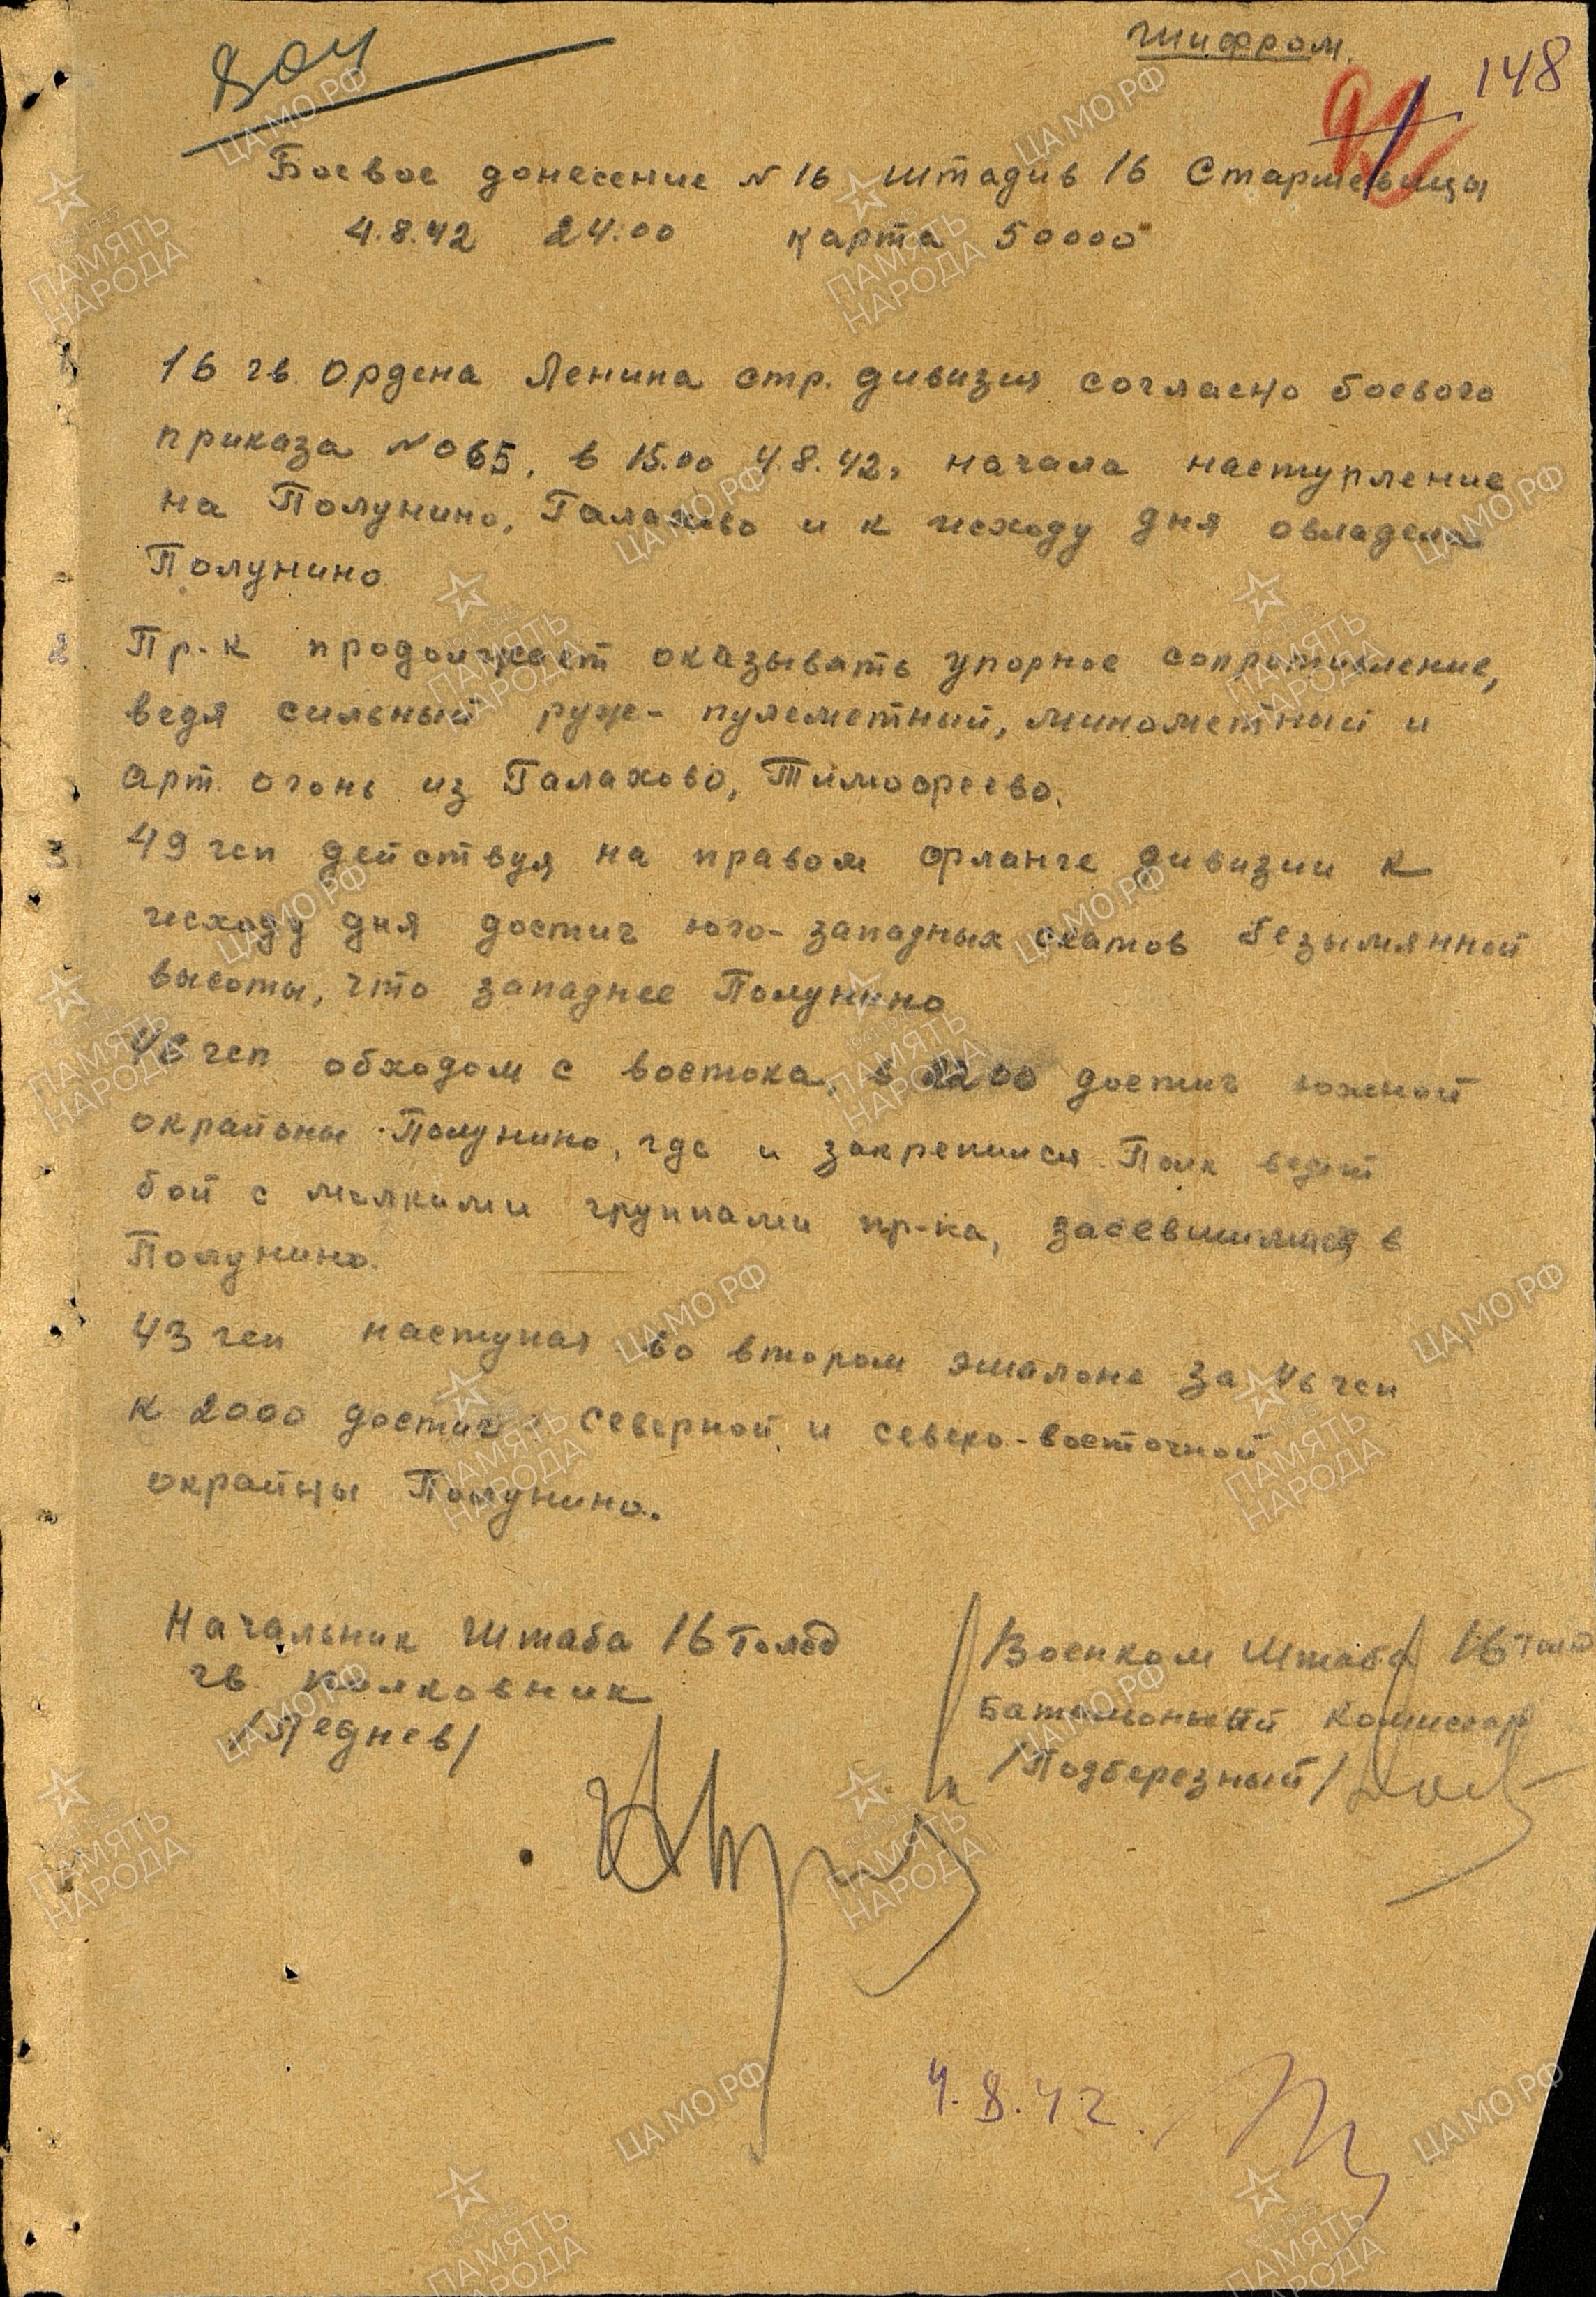 Шифром.
148
Боевое донесение N 16 штадив 16 Старшевицы
4.8.42 24.00 карта 50000
1 16 гв. Ордена Ленина стр. дивизия согласно боевого
приказа N 065, в 15.00 4.8.42, начала наступление
на Полунино, Галахово и к исходу дня овладела
Полунино
2. Пр-к продолжает оказывать упорное сопротивление,
ведя сильный руж- пулеметный, минометный и
арт. огонь из Галахово, Тимофеево.
3. 49 гсп действуя на правом фланге дивизии к
исходу дня достиг юго-западных скатов безымянной
высоты, что западнее Полунино
46 гсп обходом с востока, в 2200 достиг южной
окрайны Полунино, где и закрепился. Полк ведет
бой с мелкими группами пр-ка, засевшимися в
Полунино.
43 гсп наступая во втором эшалоне за 46 гсп
к 2000 достиг северной и северо-восточной
окрайны Полунино.
Начальник Штаба 16 голсд
гв. полковник
/Леднев/
Военком Штаба 16 голсд
Батальонный комиссар
/Подберезный/
4.8.42.
ЦА МО РФ
ПАМЯТЬ НАРОДА